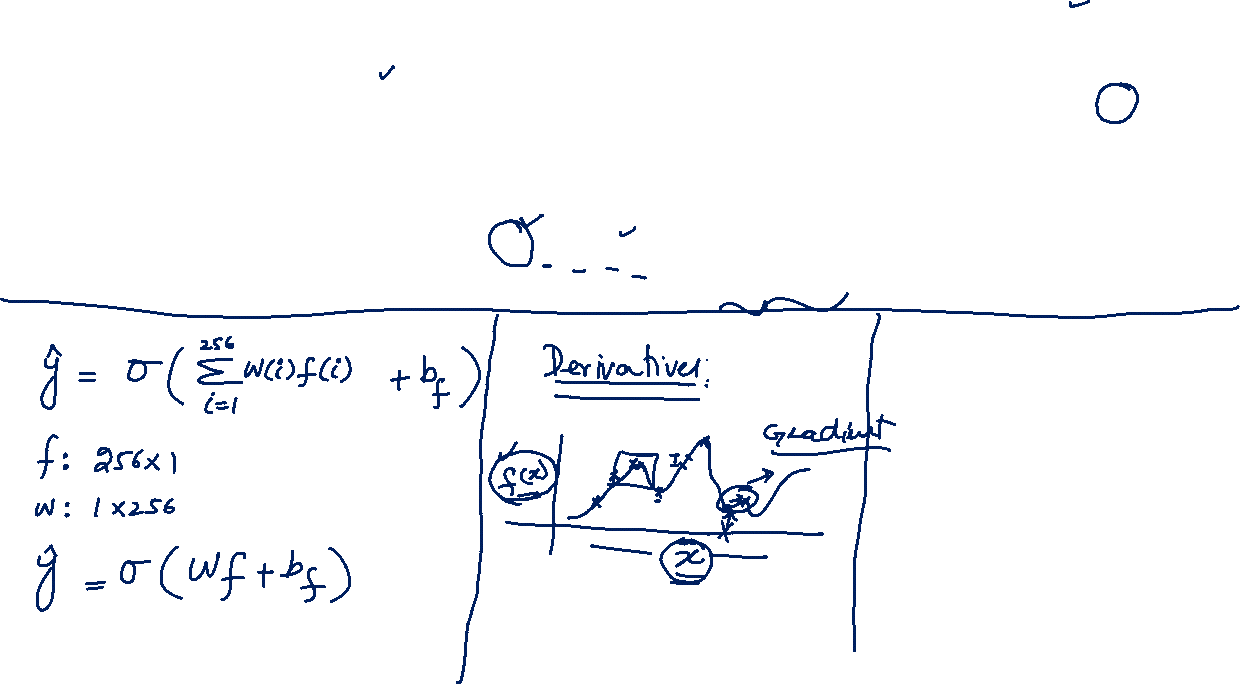 ŷ = σ( ∑_{i=1}^{256} W(i)f(i) + b_f )
f: 256×1
w: 1×256
ŷ = σ(Wf + b_f)
Derivatives:
Gradient
f(x)
x